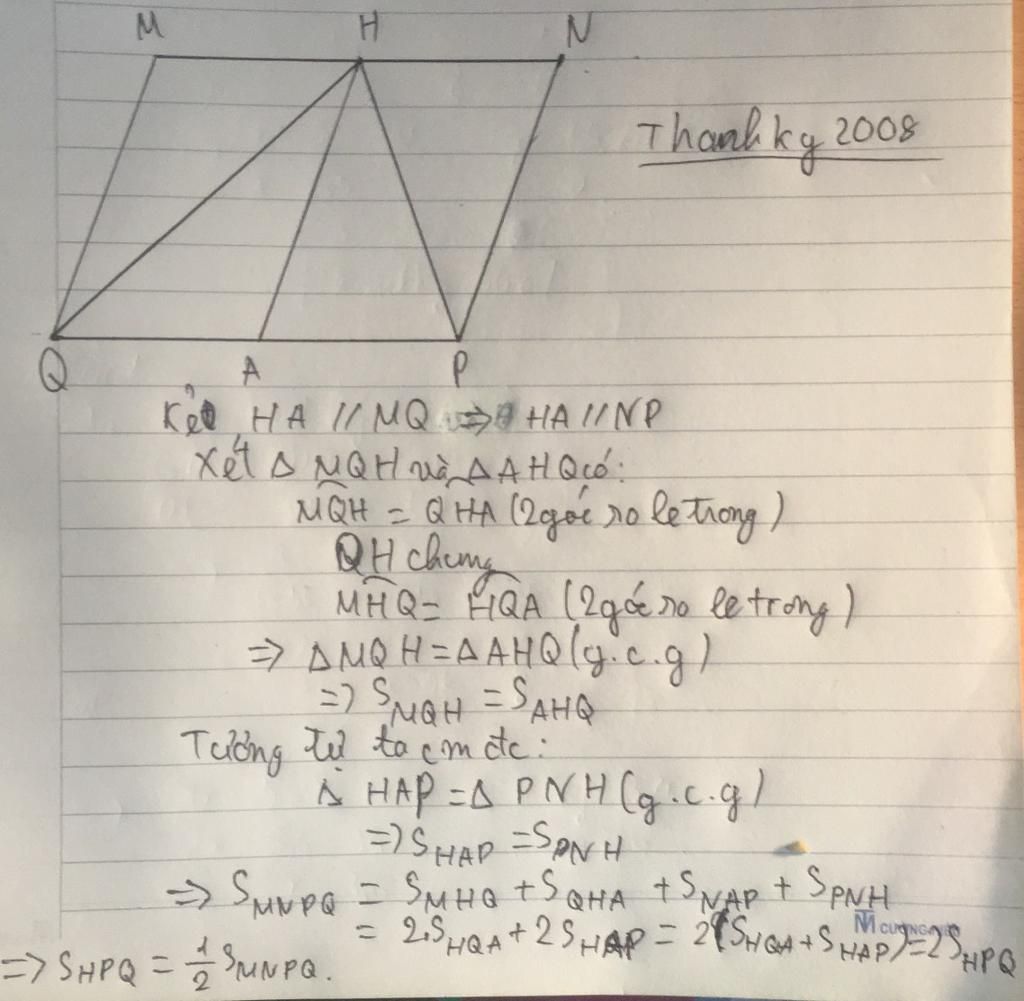 M H N
Thanhkg 2008
Q A P
Kẻ HA // MQ => HA // NP
Xét Δ MQH và Δ AHQ có:
MQH = QHA (2 góc so le trong)
QH chung
MHQ = HQA (2 góc so le trong)
=> ΔMQH = ΔAHQ (g.c.g)
=> S_MQH = S_AHQ
Tương tự ta cm đc:
Δ HAP = Δ PNH (g.c.g)
=> S_HAP = S_PNH
=> S_MNPQ = S_MHQ + S_QHA + S_NAP + S_PNH
= 2.S_HQA + 2S_HAP = 2(S_HQA + S_HAP) = 2S_HPQ
=> S_HPQ = 1/2 S_MNPQ.